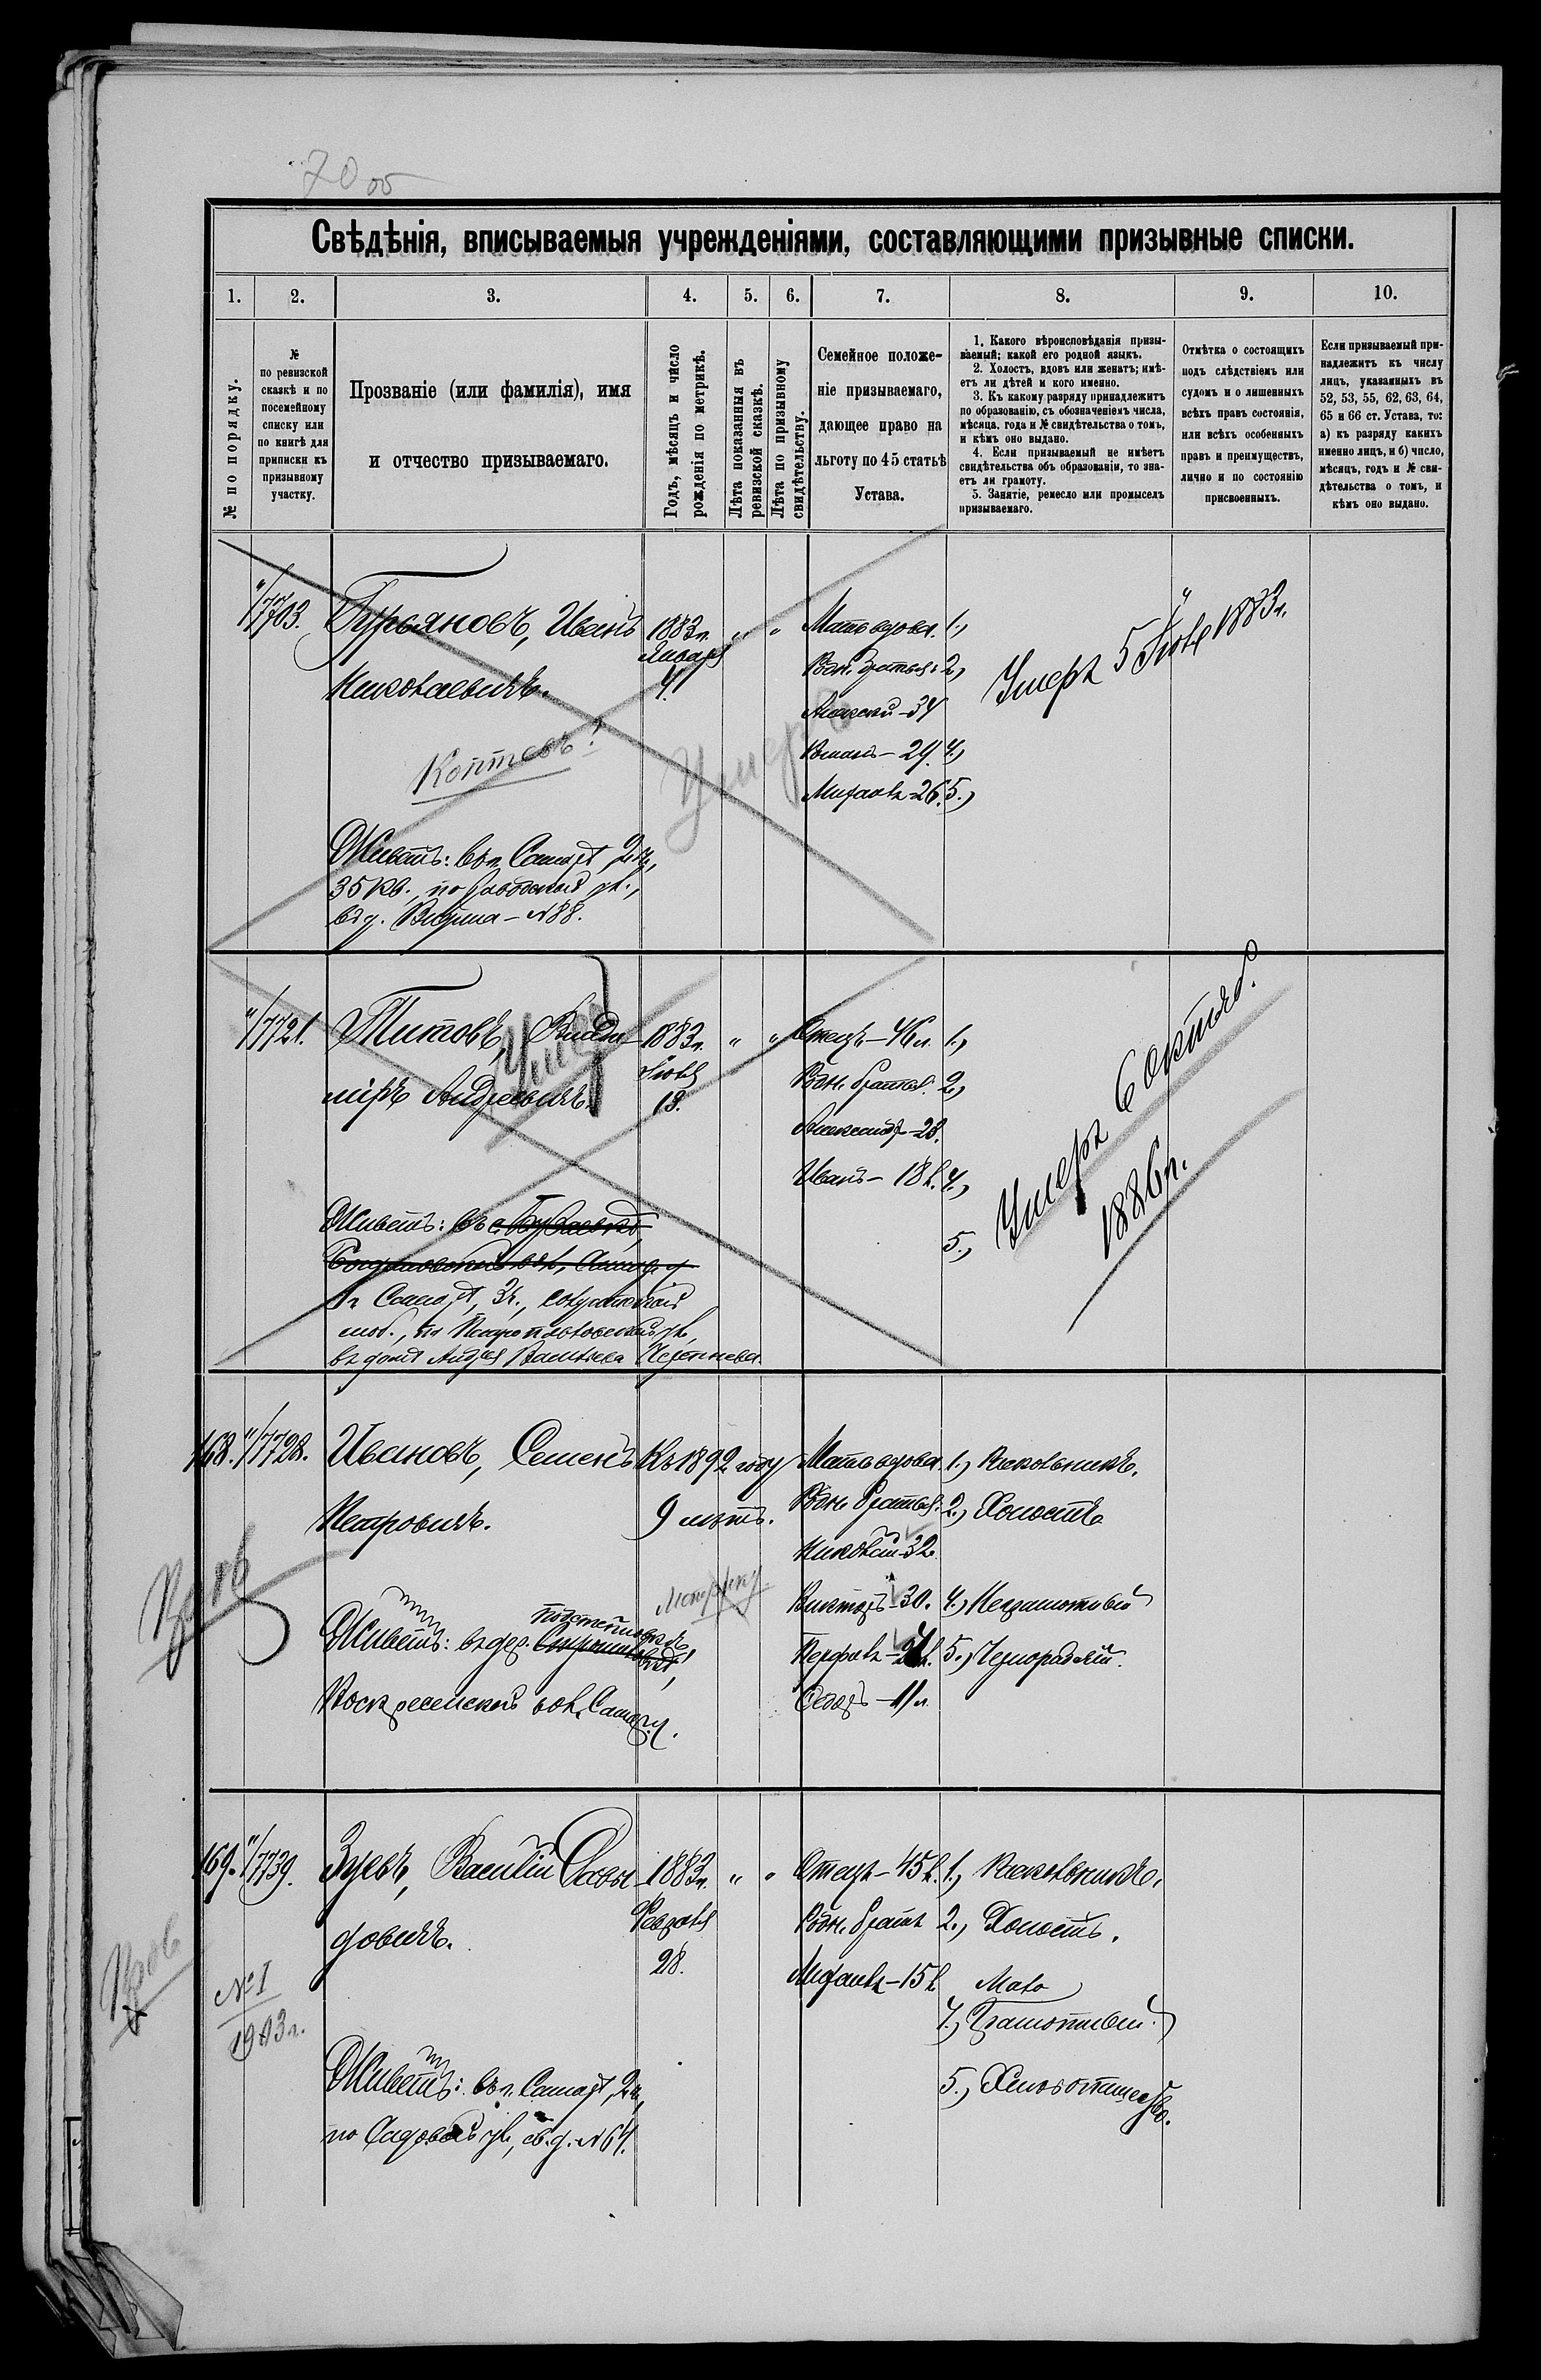 70 об
Свѣдѣнія, вписываемыя учрежденіями, составляющими призывные списки.
1. 2. 3. 4. 5. 6. 7. 8. 9. 10.
№ по порядку.
№
по ревизской
сказкѣ и по
посемейному
списку или
по книгѣ для
приписки къ
призывному
участку.
Прозваніе (или фамилія), имя
и отчество призываемаго.
Годъ, мѣсяцъ и число
рожденія по метрикѣ.
Лѣта показанныя въ
ревизской сказкѣ.
Лѣта по призывному
свидѣтельству.
Семейное положе-
ніе призываемаго,
дающее право на
льготу по 45 статьѣ
Устава.
1. Какого вѣроисповѣданія призы-
ваемый; какой его родной языкъ.
2. Холостъ, вдовъ или женатъ; имѣ-
етъ ли дѣтей и кого именно.
3. Къ какому разряду принадлежитъ
по образованію, съ обозначеніемъ числа,
мѣсяца, года и № свидѣтельства о томъ,
и кѣмъ оно выдано.
4. Если призываемый не имѣетъ
свидѣтельства объ образованіи, то зна-
етъ ли грамоту.
5. Занятіе, ремесло или промыселъ
призываемаго.
Отмѣтка о состоящихъ
подъ слѣдствіемъ или
судомъ и о лишенныхъ
всѣхъ правъ состоянія,
или всѣхъ особенныхъ
правъ и преимуществъ,
лично и по состоянію
присвоенныхъ.
Если призываемый при-
надлежитъ къ числу
лицъ, указанныхъ въ
52, 53, 55, 62, 63, 64,
65 и 66 ст. Устава, то:
а) къ разряду какихъ
именно лицъ, и б) число,
мѣсяцъ, годъ и № сви-
дѣтельства о томъ, и
кѣмъ оно выдано.
"/7703.
Гурьяновъ, Иванъ
Николаевичъ.
Коптевъ?
Живетъ: въ г. Самарѣ, 2 ч.,
35 кв., по Заводской ул.,
въ д. №88.
1883 г.
Января
4.
" "
Умеръ
Мать вдова.
Родн. братья:
Алексѣй-34
29.
Михаилъ-26.
1.,
2.,
4.,
5.,
Умеръ 5 Іюля 1883 г.
"/7721.
Титовъ, Влади-
міръ Андреевичъ.
Умеръ
Живетъ: въ с.
г. Самарѣ, 3 ч.,
въ домѣ Андрея
1883 г.
Іюля
13.
" "
Отецъ-46 л.
Родн. братья:
Александръ-28.
Иванъ-18 л.
1.,
2.,
4.,
5.,
Умеръ 6 октяб.
1886 г.
168. "/7728.
Ивановъ, Семенъ
Петровичъ.
Живетъ: въ дер.
Воскресенской вол., Самар. у.
Къ 1892 году
9 лѣтъ.
Метрику
Мать вдова
Родн. братья:
Николай-32
Викторъ-30.
Ѳедоръ-11 л.
1., Раскольникъ.
2., Холостъ
4., Неграмотный
5., Чернорабочій.
169. "/7739.
Зуевъ, Василій Савы-
довичъ.
№ I
1903 г.
Живетъ: въ г. Самарѣ, 2 ч.,
по Садовой ул., св. д. №64.
1883 г.
Февраля
28.
" "
Отецъ-45 л.
Родн. братъ
Михаилъ-15 л.
1., Раскольникъ.
2., Холостъ.
Мало
4., Грамотный.
5., Хлѣбопашество.